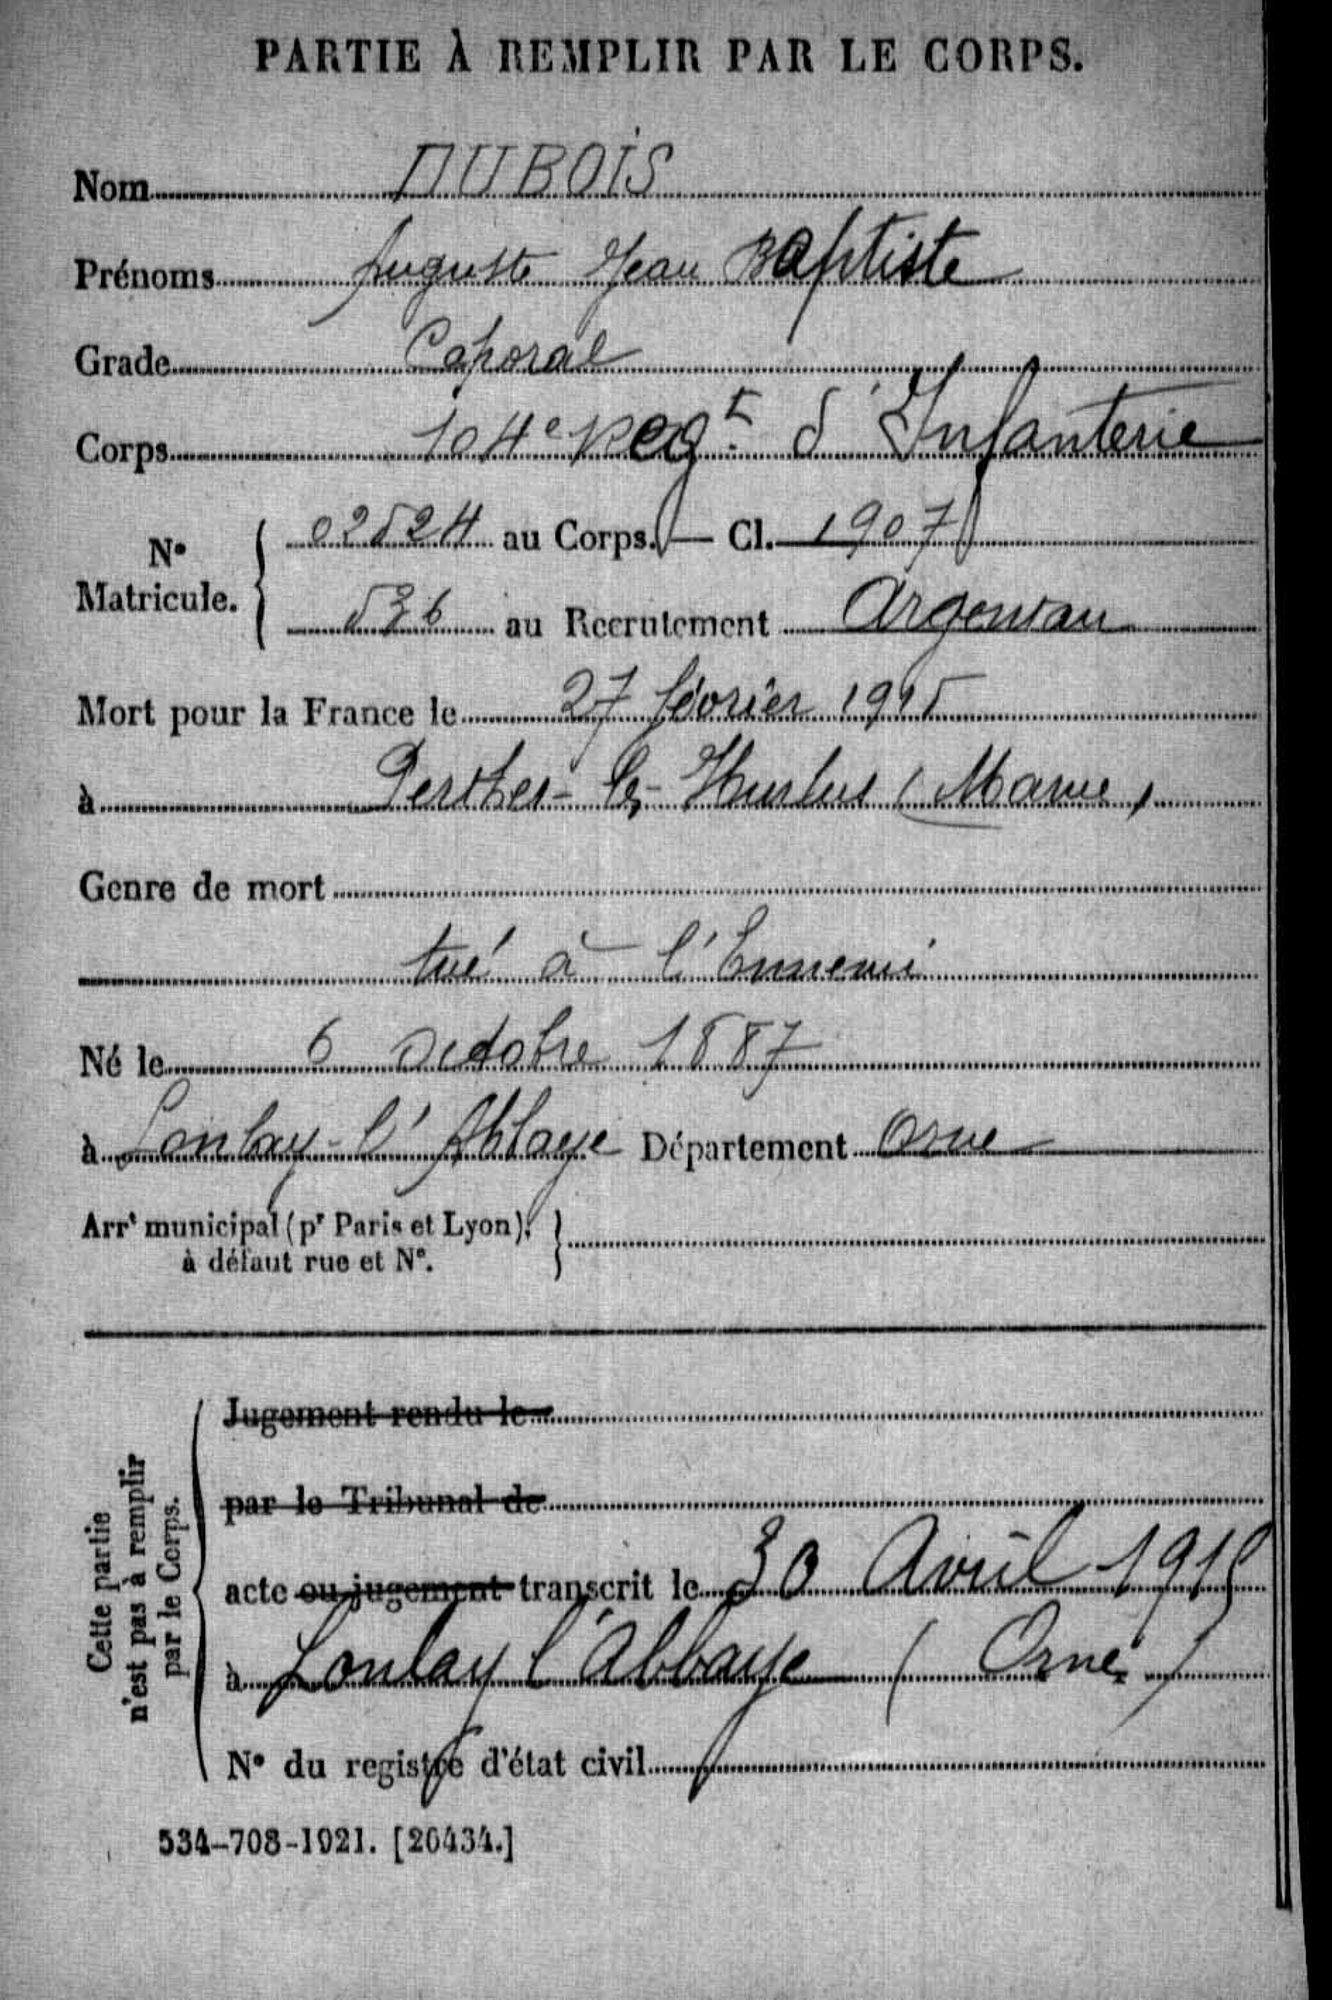 PARTIE À REMPLIR PAR LE CORPS.
Nom DUBOIS
Prénoms Auguste Jean Baptiste
Grade Caporal
Corps 104e Regt d'Infanterie
N° Matricule. { 02524 au Corps. — Cl. 1907
536 au Recrutement Argentan
Mort pour la France le 27 février 1915
à Perthes-les-Hurlus (Marne)
Genre de mort
tué à l'Ennemi
Né le 6 Octobre 1887
à Lonlay-l'Abbaye Département Orne
Arrt municipal (pr Paris et Lyon),
à défaut rue et N°.
Cette partie n'est pas à remplir par le Corps.
Jugement rendu le
par le Tribunal de
acte ou jugement transcrit le 30 Avril 1915
à Lonlay l'Abbaye (Orne)
N° du registre d'état civil
534-708-1921. [26434.]